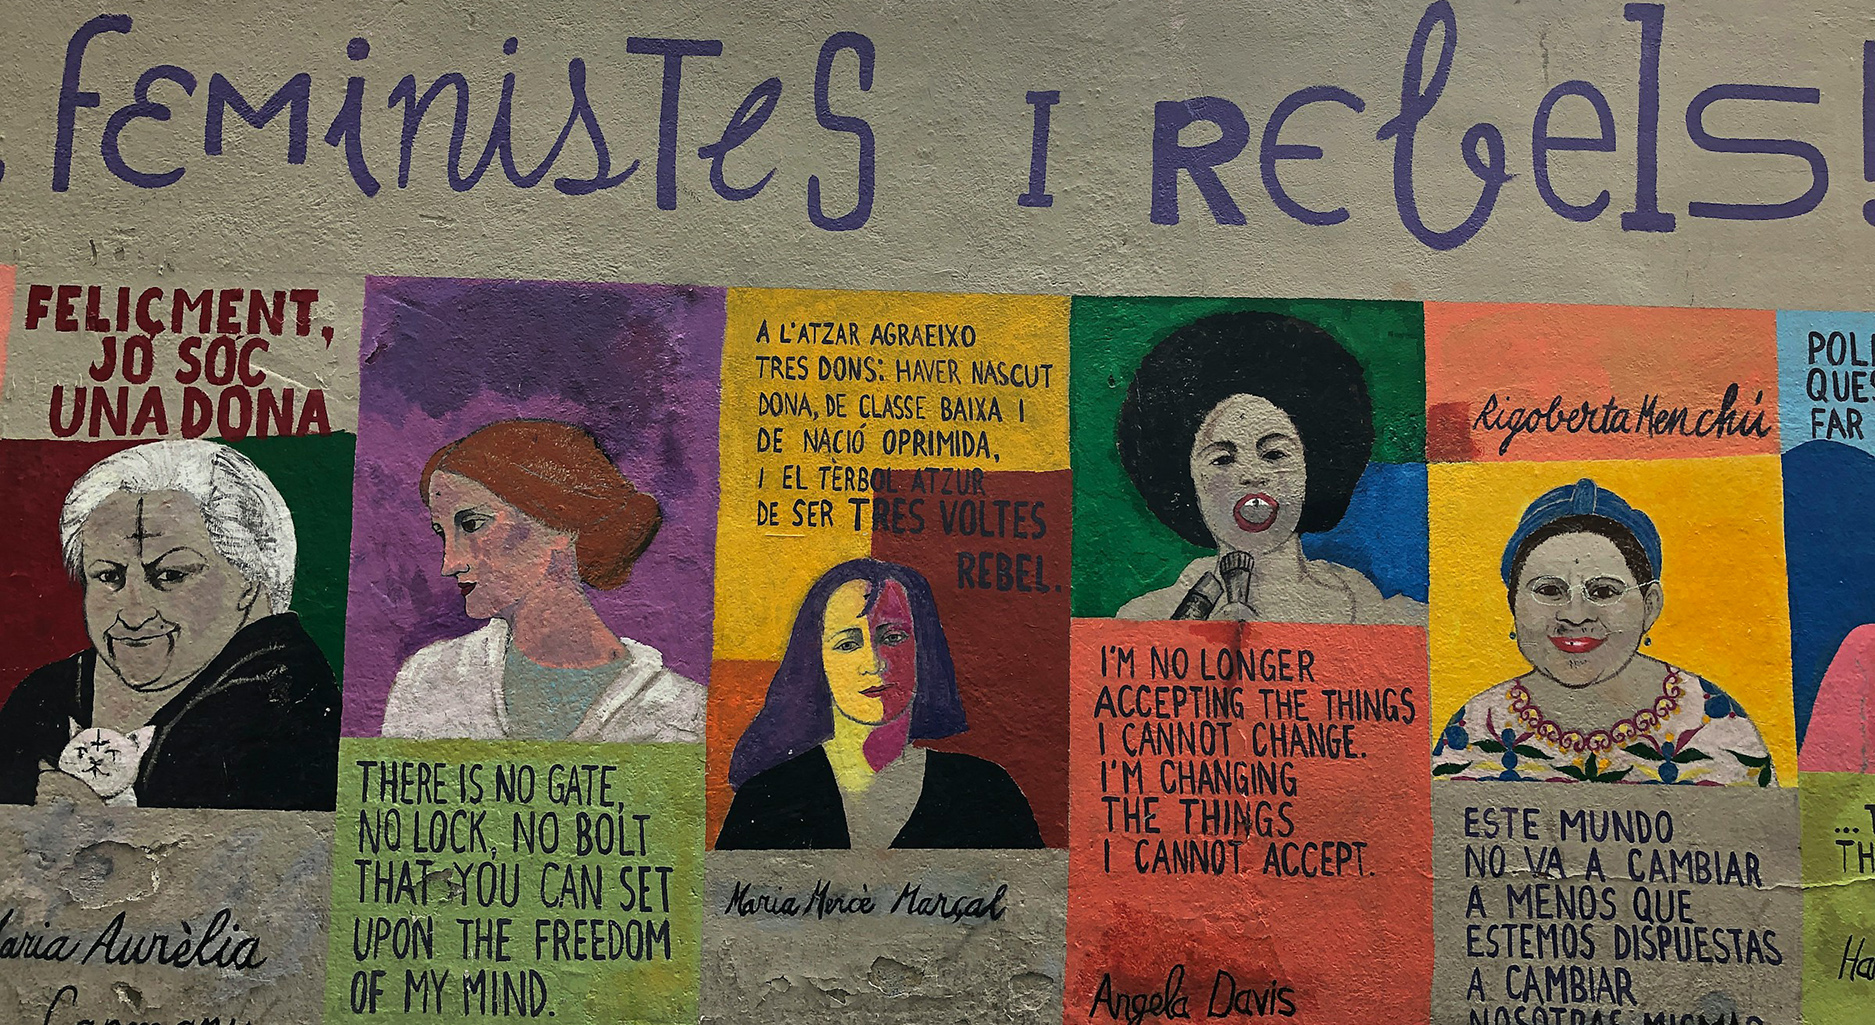 FEMINISTES I REBELS!
FELIÇMENT,
JO SÓC
UNA DONA
Maria Aurèlia
Capmany
THERE IS NO GATE,
NO LOCK, NO BOLT
THAT YOU CAN SET
UPON THE FREEDOM
OF MY MIND.
A L'ATZAR AGRAEIXO
TRES DONS: HAVER NASCUT
DONA, DE CLASSE BAIXA I
DE NACIÓ OPRIMIDA,
I EL TÈRBOL ATZUR
DE SER TRES VOLTES
REBEL.
Maria Mercè Marçal
I'M NO LONGER
ACCEPTING THE THINGS
I CANNOT CHANGE.
I'M CHANGING
THE THINGS
I CANNOT ACCEPT.
Angela Davis
Rigoberta Menchú
ESTE MUNDO
NO VA A CAMBIAR
A MENOS QUE
ESTEMOS DISPUESTAS
A CAMBIAR
NOSOTRAS MISMAS
POL
QUE
FAR
...
TH
Ha